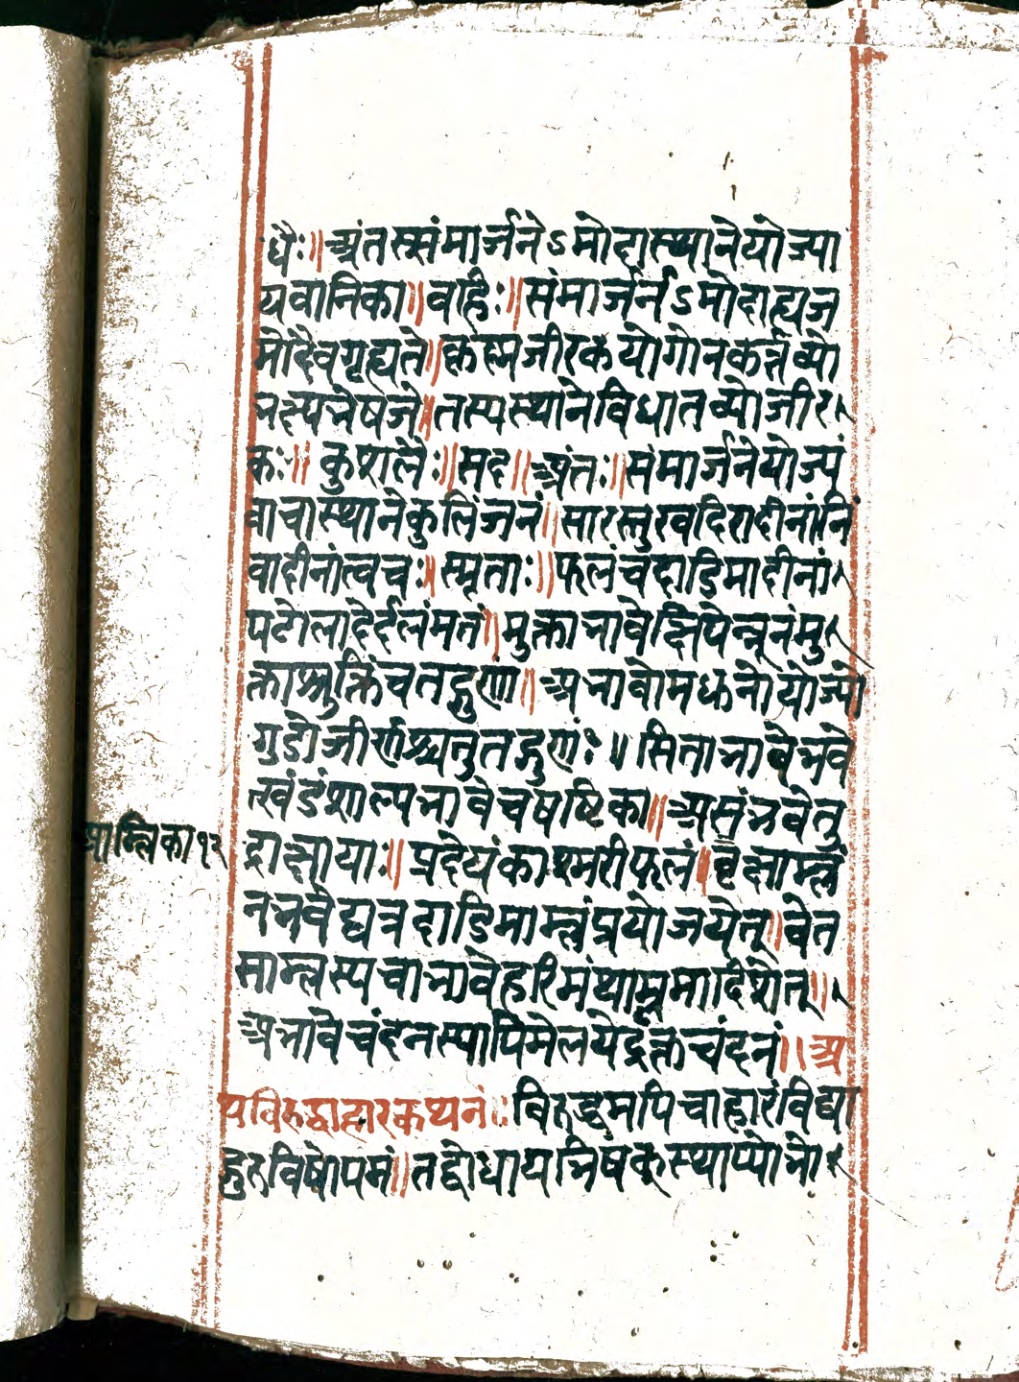 धैः॥ अंतस्संमार्जनेऽमोदास्थाने योज्या
यवानिका॥ वहिः॥ संमार्जनेऽमोदाह्यज
मोदैवगृह्यते॥ कृष्मजीरकयोगोनकर्त्तव्यो
भस्पभेषजे॥ तस्पस्थानेविधातव्योजीर
कः॥ कुशलैः॥ सद॥ अंतः॥ संमार्जनेयोज्पं
वाचास्थानेकुलिंजनं॥ सारस्तुखदिरादीनांनिं
वादीनांत्वचः॥ स्मृताः॥ फलंचदाडिमादीनां
पटोलादेर्द्दलंमतं॥ मुक्ताभावेक्षिपेन्नूनंमु
क्ताशुक्तिंचतद्गुणं॥ अभावोमधनोयोज्यो
गुडोजीर्णश्चतुतद्गुणंः॥ सिताभावेभवे
त्खंडंशाल्पभावेचषष्टिका॥ असंभवेतु
द्राक्षायाः॥ प्रदेयंकाश्मरीफलं॥ वृक्षाम्लं
नभवेद्यत्रदाडिमाम्लंप्रयोजयेत्॥ वेत
साम्लस्पचाभावेहरिमंथाम्लमादिशेत्॥
अभावेचंदनस्पापिमेलयेद्रक्तचंदनं॥ अ
थविरुद्धाहारकथनं॥ विरुद्धमपिचाहारंविद्या
द्गुरुविषोपमं॥ तद्दोधायभिषक्स्थाप्यो
आम्लिका १२